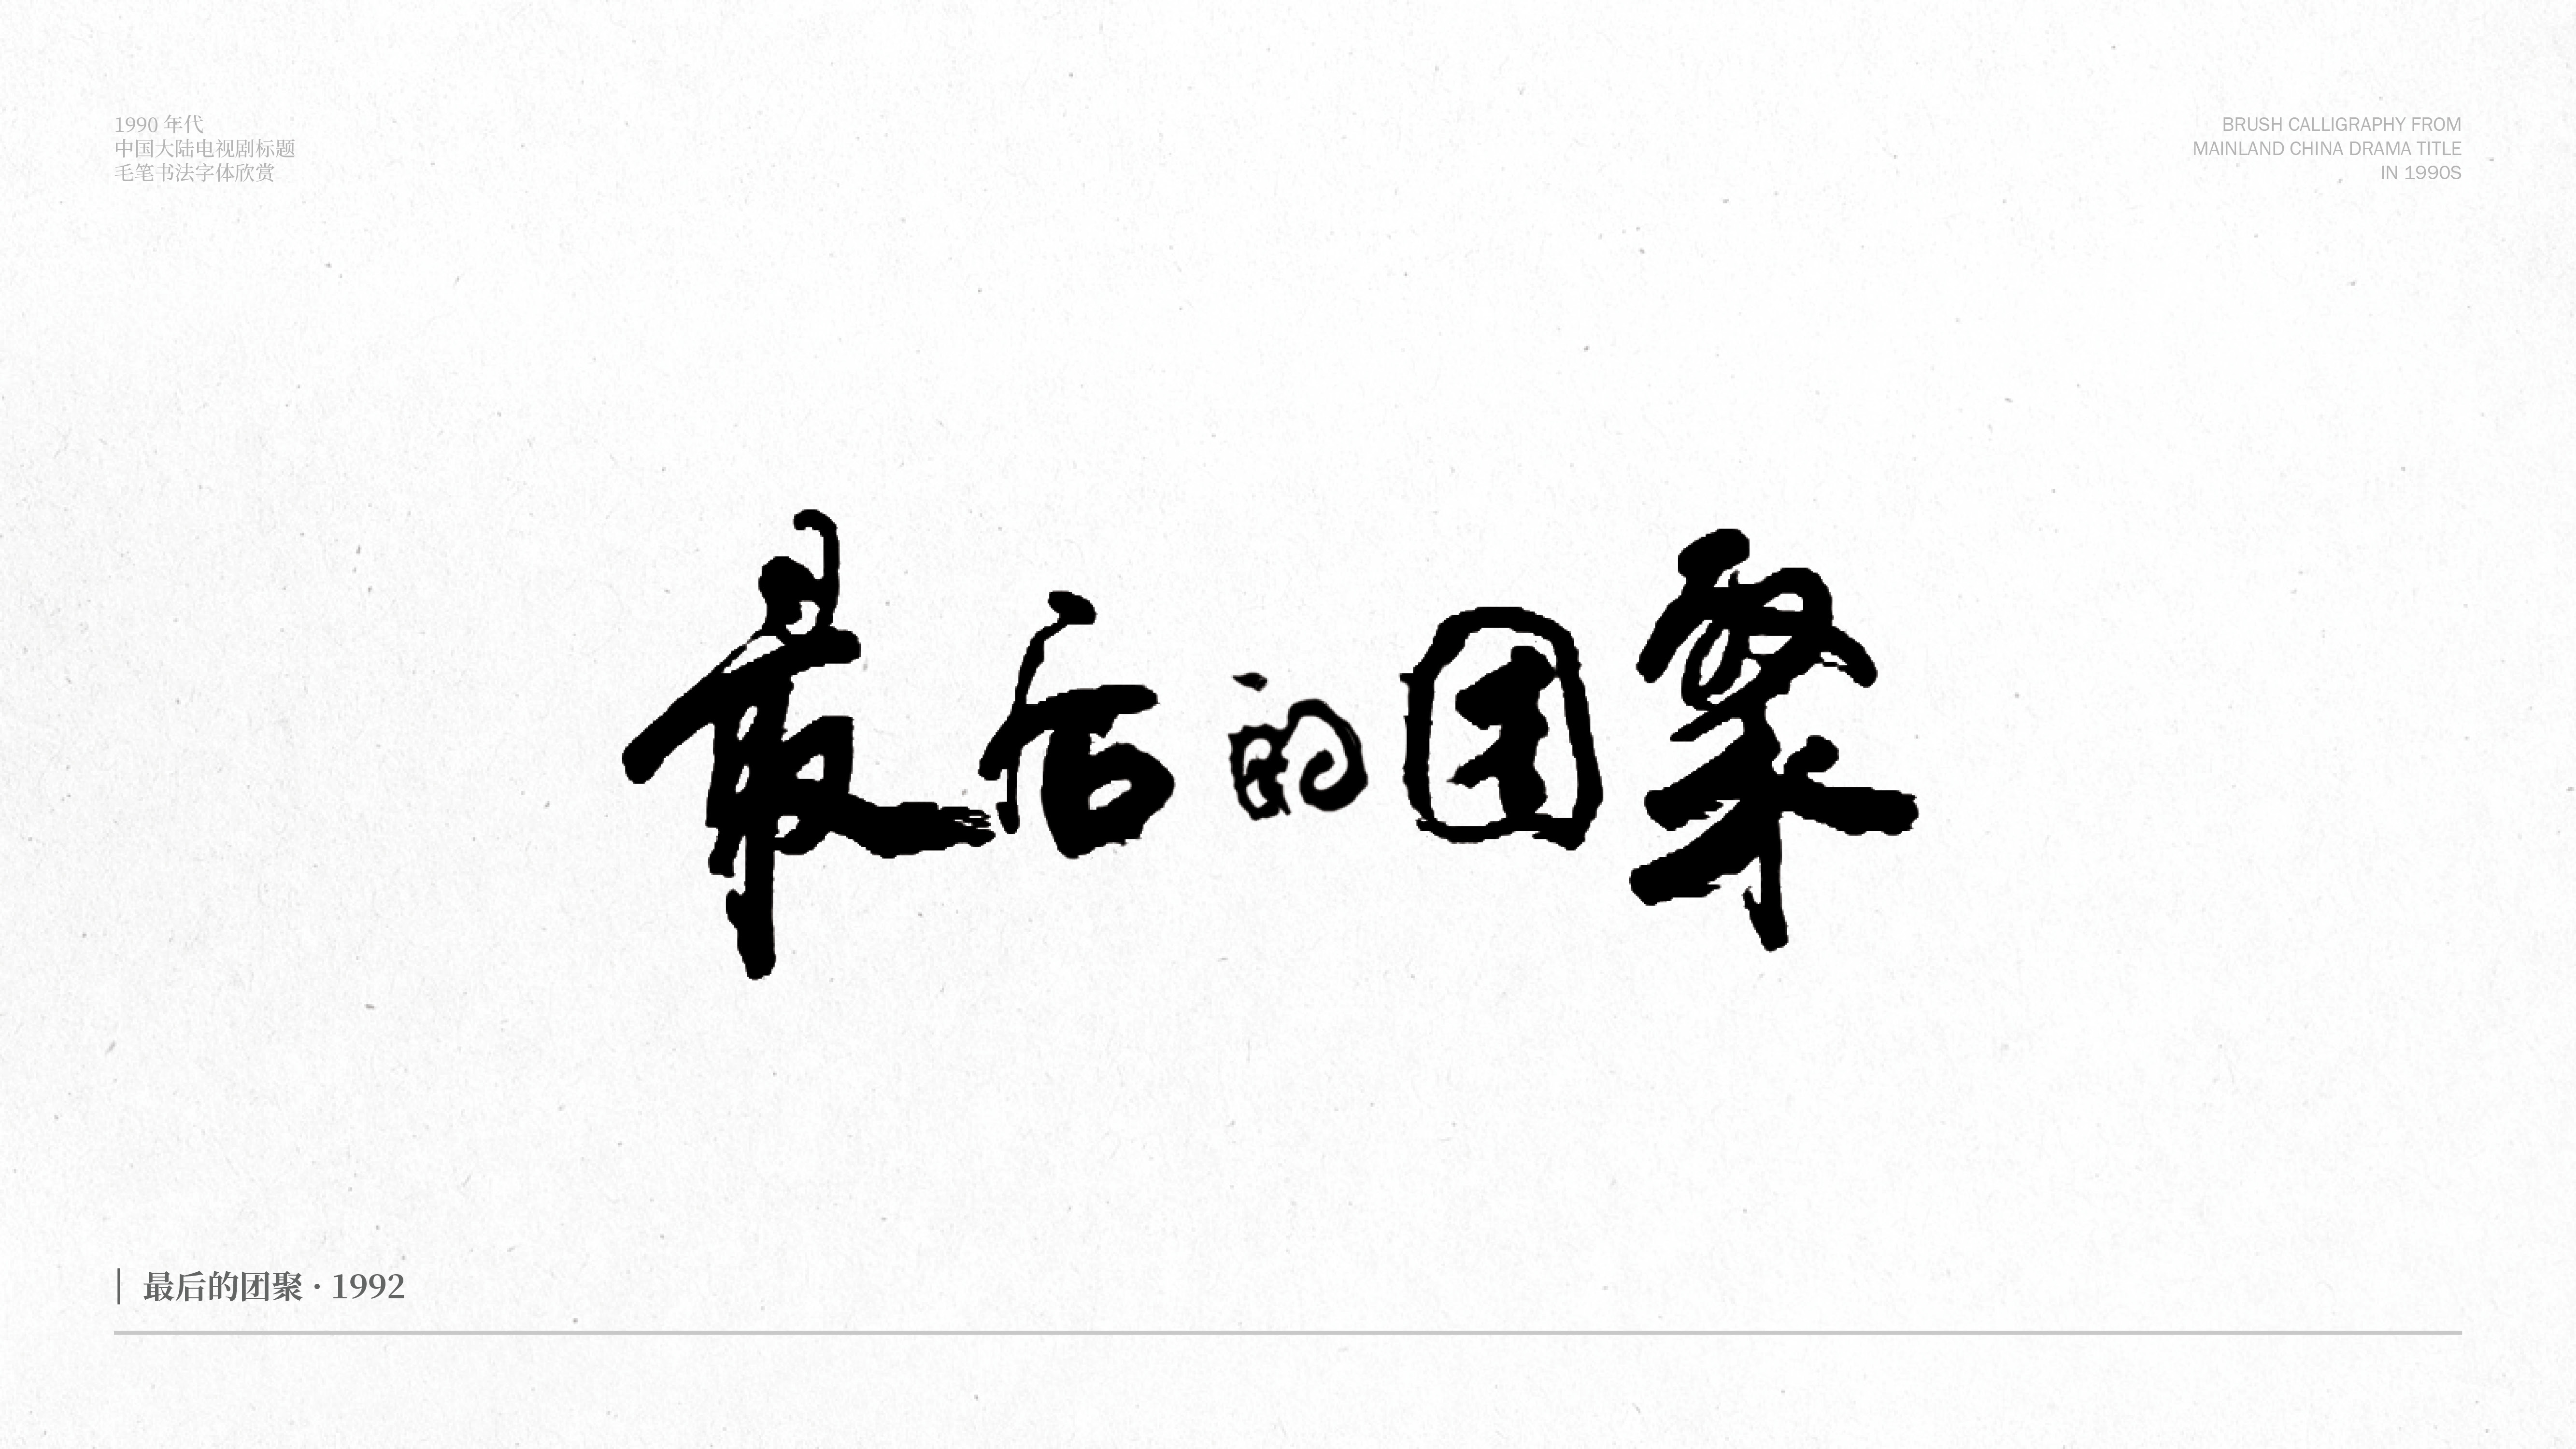 1990 年代
中国大陆电视剧标题
毛笔书法字体欣赏
BRUSH CALLIGRAPHY FROM
MAINLAND CHINA DRAMA TITLE
IN 1990S
最后的团聚
最后的团聚 · 1992